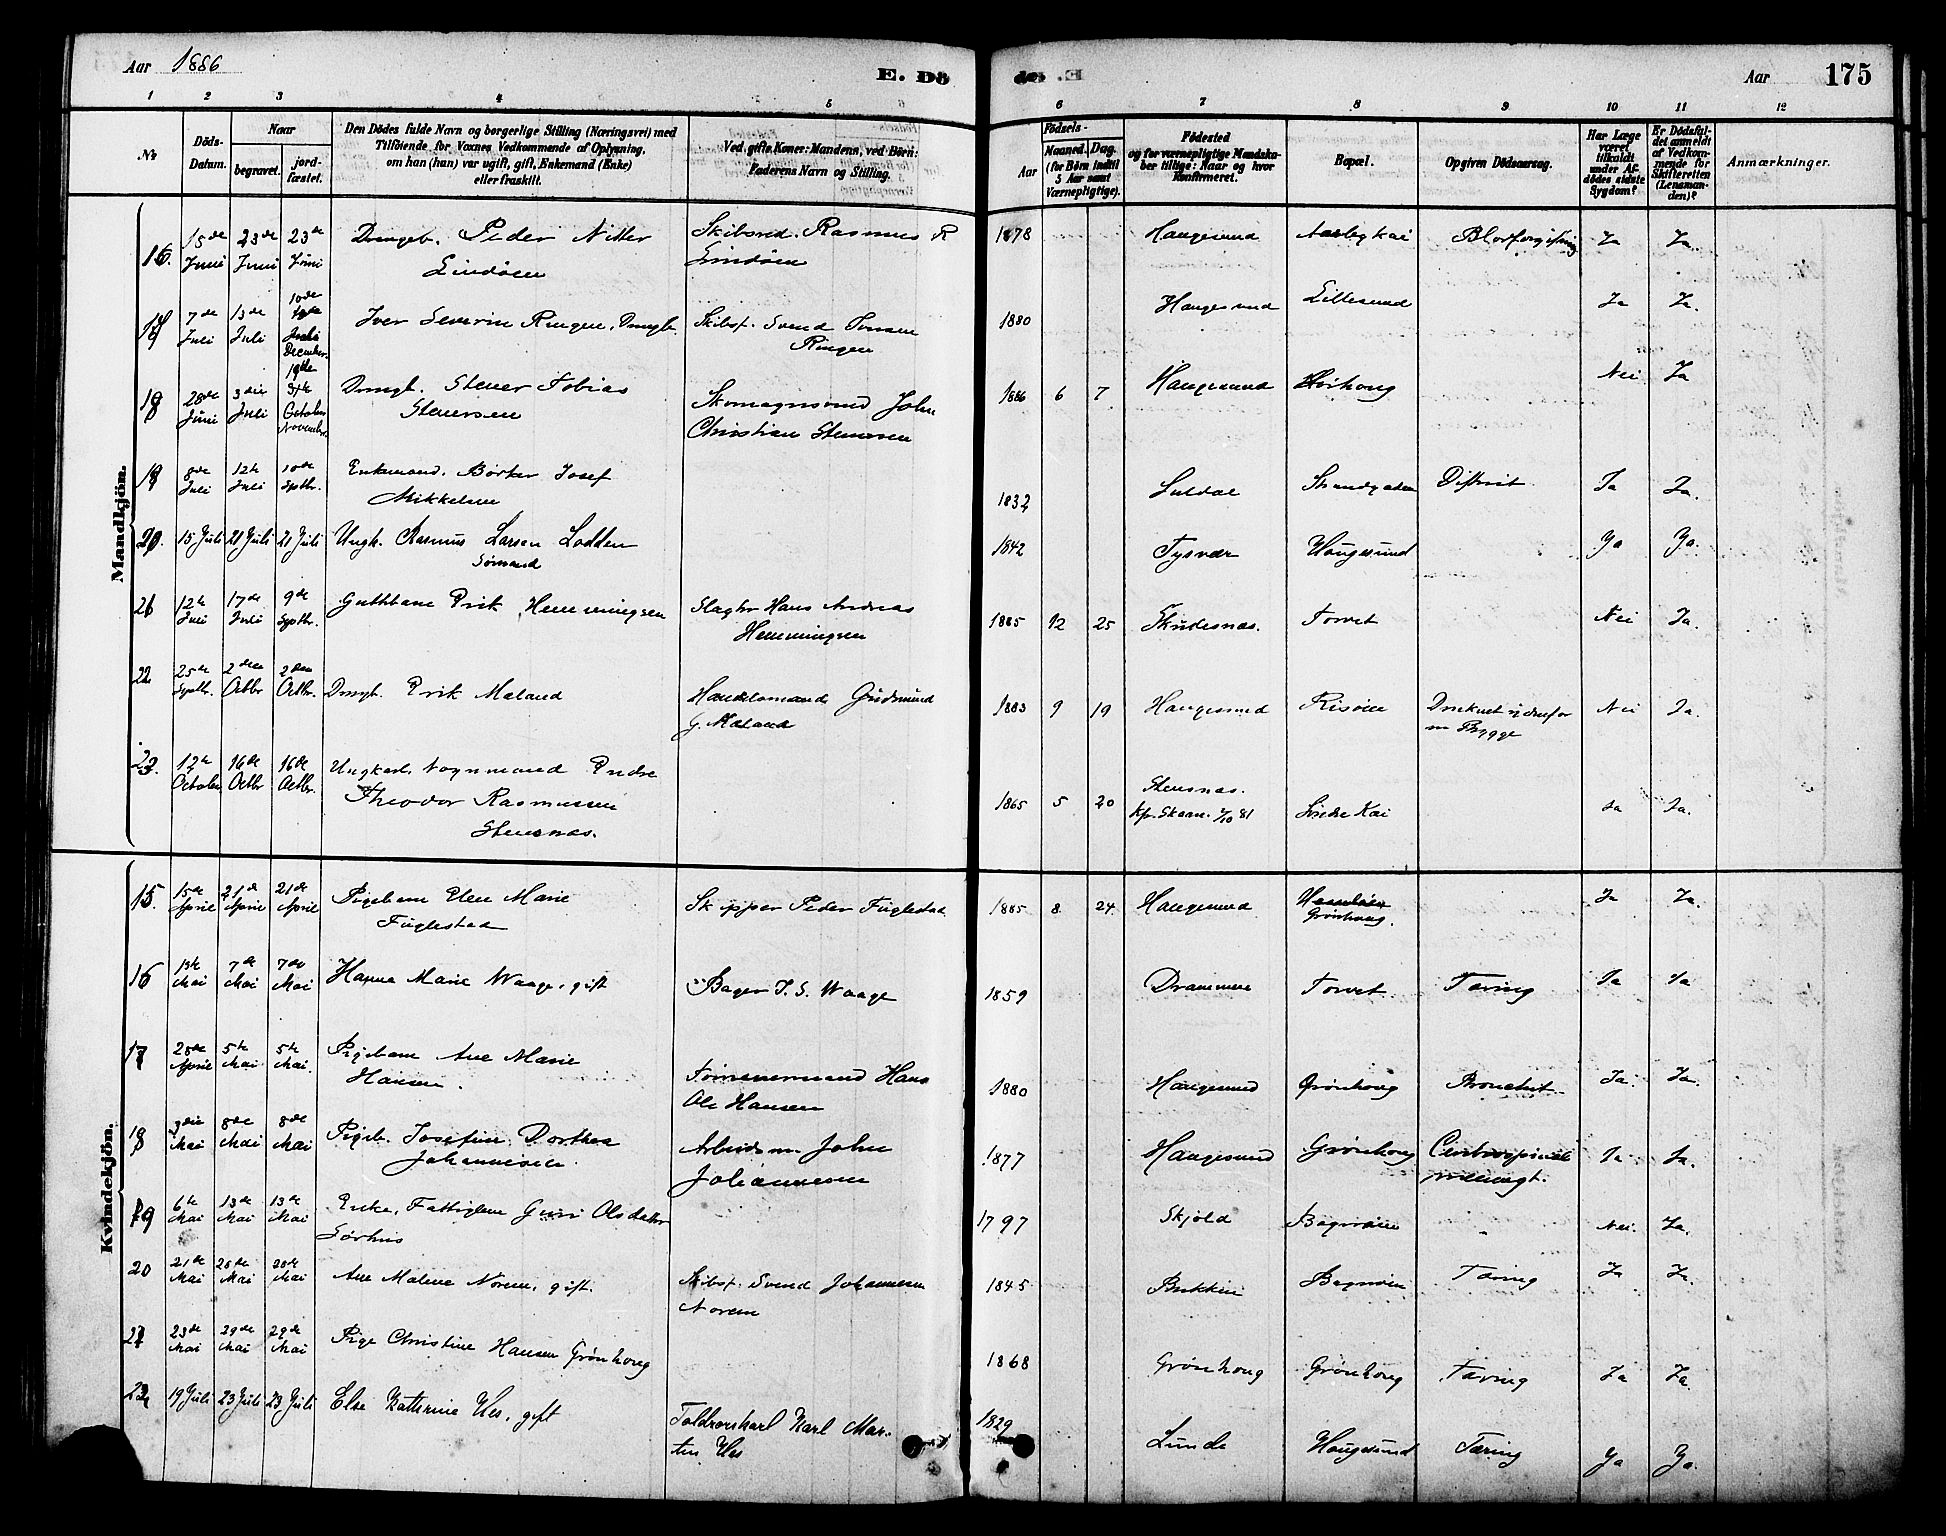 Aar 1886
E. Dö
de. E
Aar
175
1 2 3 4 5 6 6 7 8 9 10 11 12
No
Döds-
Datum.
Naar
begravet.
jord-
fæstet.
Den Dödes fulde Navn og borgerlige Stilling (Næringsvei) med
Tilföiende for Voxnes Vedkommende af Oplysning,
om han (hun) var ugift, gift, Enkemand (Enke)
eller fraskilt.
Ved gifte Koner: Mandens, ved Börn:
Faderens Navn og Stilling.
Födsels-
Aar
Maaned. Dag.
(for Börn indtil
5 Aar samt
Værnepligtige).
Födested
og for værnepligtige Mandska-
ber tillige: Naar og hvor
Konfirmeret.
Bopæl.
Opgiven Dödsaarsag.
Har Læge
været
tilkaldt
under Af-
dödes sidste
Sygdom?
Er Dödsfal-
det anmeldt
af Vedkom-
mende for
Skifteretten
(Lensman-
den)?
Anmærkninger.
Mandkjön.
16. 15de Juni 23de Juni 23de Juni Drengeb. Peder Nitter
Lindöen
Skibsred. Rasmus R
Lindöen
1878 Haugesund Blodforgiftning Ja Ja.
17 7de Juli 13de Juli 10de December. Iver Severin Ringen, Drngb. Skibsf. Svend Ringen
1880 Haugesund Lillesund Ja Ja.
18 28de Juni 3die Juli 19de November. Drngb. Steuer Tobias
Steuersen
John
Christian Steuersen
1886 6 7 Haugesund Nei Ja
19 8de Juli 12te Juli 10de Septbr. Enkemand. Börker Josef
Mikkelsen
1832 Suldal Strandgaden Difterit. Ja Ja.
20. 15 Juli 21 Juli 21 Juli Ungk. Rasmus Larsen Lodden
Sömand
1842 Tysvær Haugesund Ja Ja.
21 12te Juli 17de Juli 9de Septbr. Guttbarn Erik Hemmingsen Slagter Hans Andreas
Hemmingsen
1885 12 25 Skudesnæs. Torvet Nei Ja.
22 25de Septbr. 2den Octbr 2den Octbr. Drngb. Erik Maland Handelsmand Gudmund
G. Maland
1883 9 19 Haugesund Risöen Druknet udenfor
en Brygge Nei Ja.
23. 12te October 16de Octbr 16de Octbr. Ungkarl. Vognmand Endre
Theodor Rasmussen
Stensnæs.
1865 5 20 Stensnæs.
Kfr. Skaare. 2/10 81 Söndre Kai Ja Ja.
Kvindekjön.
15. 15de April 21de April 21de April Pigebarn Elen Marie
Fuglestad
Skipper Peder Fuglestad
1885 8 24 Haugesund Grönhaug. Ja Ja.
16 1ste Mai 7de Mai 7de Mai Hanna Marie Waage, gift Bager J. S. Waage
1859 Drammen Torvet Tæring Ja Ja
17 28de April 5te Mai 5te Mai. Pigebarn Ane Marie
Hansen.
Tömmermand Hans
Ole Hansen
1880 Haugesund Grönhaug Bronchit Ja. Ja.
18 3die Mai 8de Mai 8de Mai Pigeb. Josefine Dorthea
Johannesen.
Arbeidsm. John
Johannesen
1877 Haugesund Grönhaug Cerebrospinal
meningt. Ja Ja.
19 6te Mai 13de Mai 13de Mai Enke, Fattiglem Guri Olsdatter
Sörhus
1797 Skjold Bagnöien Nei. Ja.
20 21de Mai 28de Mai 28de Mai Ane Malene Norem, gift. Skibsf. Svend Johannesen
Norem
1845 Bukken Bagnöien Tæring Ja Ja.
21 23de Mai 29de Mai 29de Mai Pige Christine Hansen Grönhoug
1868 Grönhoug Grönhoug Tæring Ja Ja.
22 19 Juli 23 Juli 23 Juli Else Kathrine Wes, gift
Toldrorskarl Karl Mor-
ten Wes
1829 Lunde Haugesund Tæring Ja Ja.